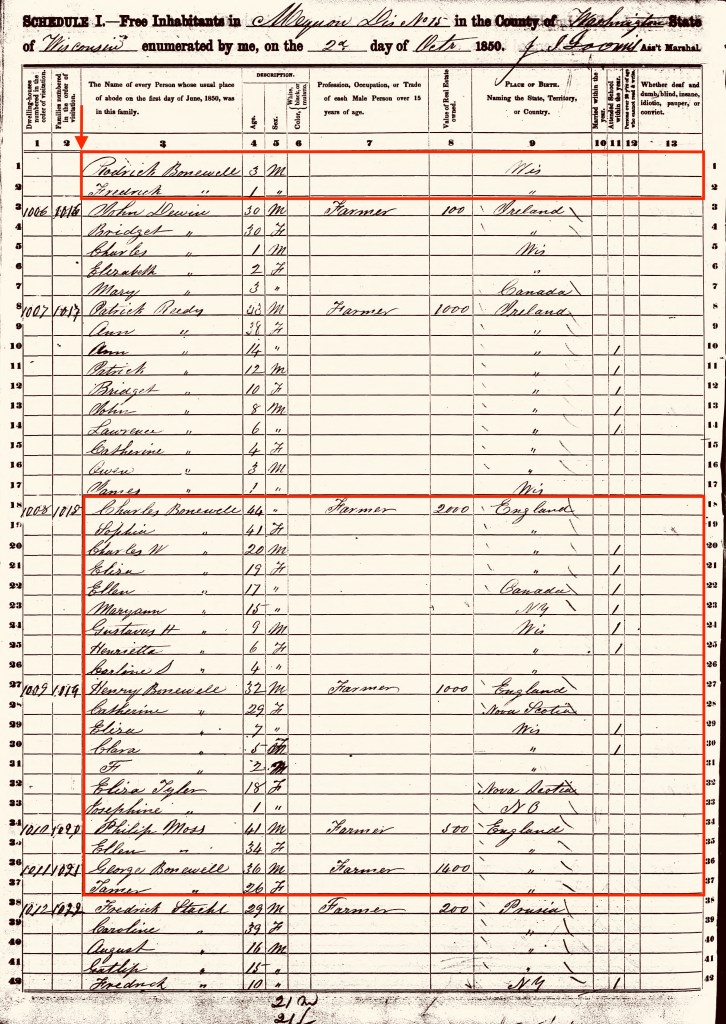 SCHEDULE I.—Free Inhabitants in Mequon Dis No 15 in the County of Washington State
of Wisconsin enumerated by me, on the 2d day of Octr. 1850. Ass't Marshal.
Dwelling-houses numbered in the order of visitation.
Families numbered in the order of visitation.
The Name of every Person whose usual place of abode on the first day of June, 1850, was in this family.
DESCRIPTION.
Age.
Sex.
Color, White, black, or mulatto.
Profession, Occupation, or Trade of each Male Person over 15 years of age.
Value of Real Estate owned.
PLACE OF BIRTH. Naming the State, Territory, or Country.
Married within the year.
Attended School within the year.
Persons over 20 y'rs of age who cannot read & write.
Whether deaf and dumb, blind, insane, idiotic, pauper, or convict.
1 2 3 4 5 6 7 8 9 10 11 12 13
1 Rodrick Bonewell 3 M Wis 1
2 Fredrick " 1 " " 2
3 1006 1016 John Dewin 30 M Farmer 100 Ireland 3
4 Bridget " 30 F " 4
5 Charles " 1 M Wis 5
6 Elizabeth " 2 F " 6
7 Mary " 3 " Canada 7
8 1007 1017 Patrick Reedy 43 M Farmer 1000 Ireland 8
9 Ann " 38 F " 9
10 Ann " 14 " " 1 10
11 Patrick " 12 M " 1 11
12 Bridget " 10 F " 1 12
13 John " 8 M " 1 13
14 Lawrence " 6 " " 1 14
15 Catherine " 4 F " 15
16 Owen " 3 M " 16
17 James " 1 " Wis 17
18 1008 1018 Charles Bonewell 44 " Farmer 2000 England 18
19 Sophia " 41 F " 19
20 Charles W " 20 M " 1 20
21 Eliza " 19 F " 1 21
22 Ellen " 17 " Canada 1 22
23 Maryann " 15 " NY 1 23
24 Gustavus H " 9 M Wis 1 24
25 Henrietta " 6 F " 1 25
26 Carline S " 4 " " 26
27 1009 1019 Henry Bonewell 32 M Farmer 1000 England 27
28 Catherine " 29 F Nova Scotia 28
29 Eliza " 7 " Wis 1 29
30 Clara " 5 " 1 30
31 F " 2 M " 31
32 Eliza Tyler 18 F Nova Scotia 32
33 Josephine " 1 " 33
34 1010 1020 Philip Moss 41 M Farmer 500 England 34
35 Ellen " 34 F " 35
36 1011 1021 George Bonewell 36 M Farmer 1400 " 36
37 Tamer " 26 F " 37
38 1012 1022 Fredrick Stachl 29 M Farmer 200 Prusia 38
39 Caroline " 39 F " 39
40 August " 16 M " 40
41 " 15 " " 41
42 Fredrick " 10 " NY 1 42
21 m
21 f